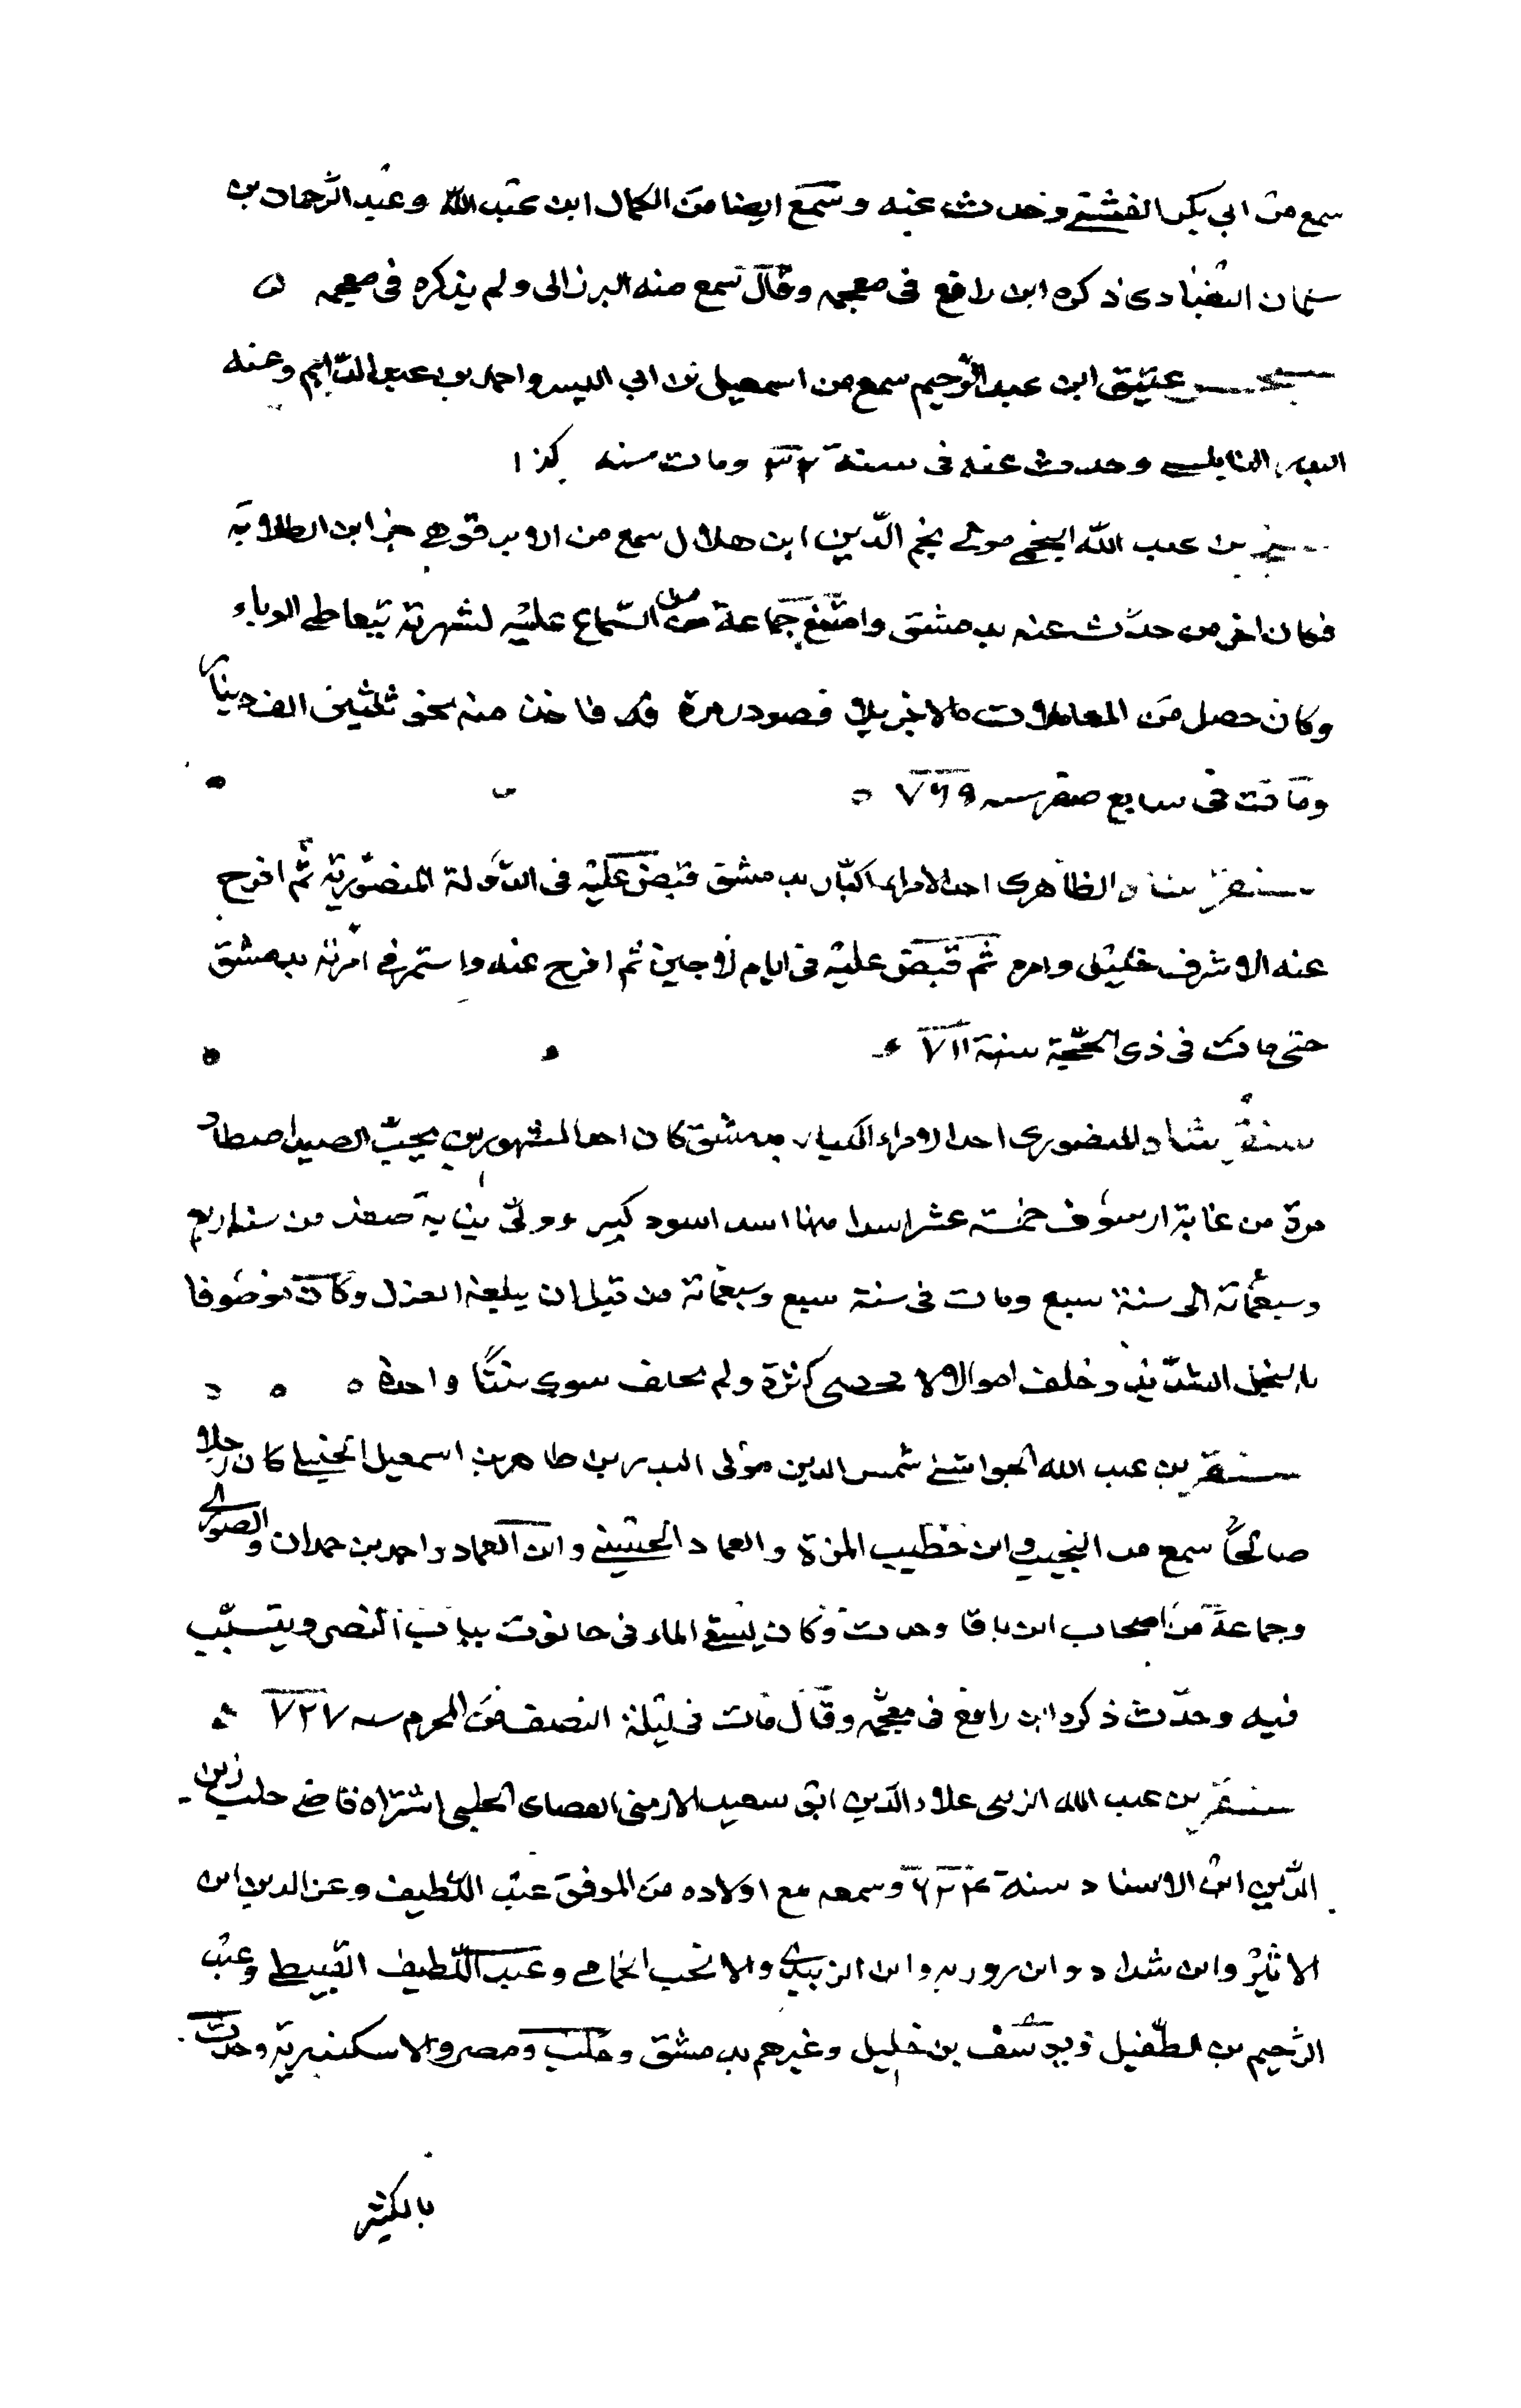 سمع من ابي بكر الفشتي وحدث عنه وسمع ايضا من الكمال ابن عبد الله وعبد الرحمان بن
سلمان البغدادي ذكره ابن رافع في معجمه وقال سمع منه البرزالي ولم يذكره في معجمه ه
سنجر عتيق ابن عبد الرحيم سمع من اسمعيل بن ابي اليسر واحمد بن عبد الدايم وعنه
النابلسي وحدث عنه في سنة ٣٢ ومات سنه كذا
سنجر بن عبد الله النجمي مولى نجم الدين ابن هلال سمع من الابرقوهي جزء ابن الطلاية
فكان اخر من حدث عنه بدمشق وامتنع جماعة من السماع عليه لشهرته بتعاطي الرباء
وكان حصل من المعاملات مالا جزيلا فصودر مرة فاخذ منه نحو ثلثين الف دينار
ومات في سابع صفر سنه ٧٦٩ ه
سنقر شاه الظاهري احد الامراء الكبار بدمشق قبض عليه في الدولة المنصورية ثم افرج
عنه الاشرف خليل وامره ثم قبض عليه في ايام لاجين ثم افرج عنه واستمر في امرته بدمشق
حتى مات في ذي الحجة سنة ٧١١
سنقر شاه المنصوري احد الامراء الكبار بدمشق كان احد المشهورين بحب الصيد اصطاد
مرة من غابة ارسوف خمسة عشر اسدا منها اسد اسود كبير وولي نيابة صفد من سنة اربع
وسبعمائة الى سنة سبع ومات في سنة سبع وسبعمائة من قبل ان يبلغه العزل وكان موصوفا
بالبخل الشديد وخلف اموالا لا تحصى كثرة ولم يخلف سوى بنتا واحدة ه
سنقر بن عبد الله الجواشني شمس الدين مولى البدر بن طاهر بن اسمعيل الحنبلي كان رجلا
صالحا سمع من النجيب وابن خطيب المزة والعماد الحسيني وابن العماد واحمد بن حمدان والصوري
وجماعة من اصحاب ابن باقا وحدث وكان يسقي الماء في حانوت بباب النصر ويتسبب
فيه وحدث ذكره ابن رافع في معجمه وقال مات في ليلة النصف من المحرم سنه ٧٢٧
سنقر بن عبد الله الزيني علاء الدين ابو سعيد الارمني القضاي الحلبي اشتراه قاضي حلب زين
الدين ابن الاستاد سنة ٦٢٤ وسمعه مع اولاده من الموفق عبد اللطيف وعز الدين ابن
الاثير وابن شداد وابن روزبه وابن الزبيدي والانجب الحمامي وعبد اللطيف القبيطي وعبد
الرحيم بن الطفيل ويوسف بن خليل وغيرهم بدمشق وحلب ومصر والاسكندرية وحدث
بالكثير